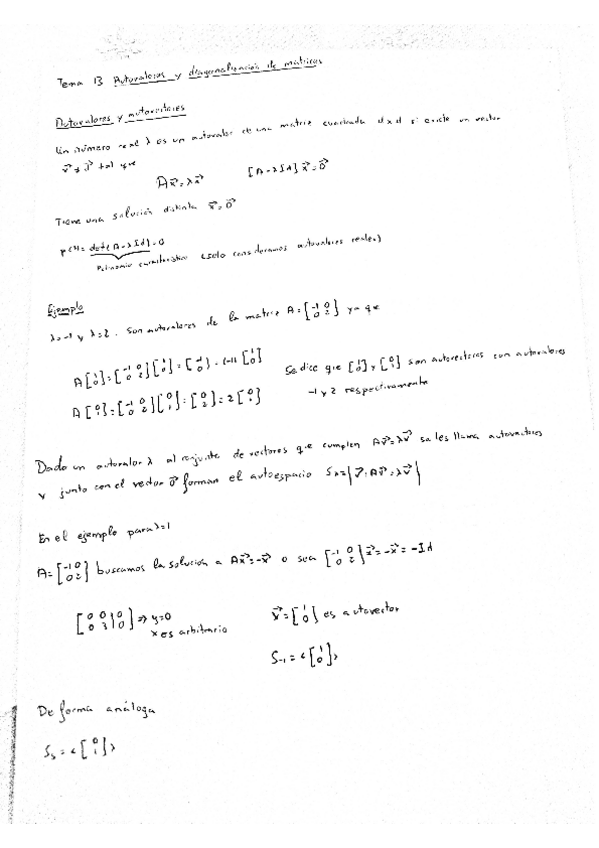 Tema 13 Autovalores y diagonalización de matrices
Autovalores y autovectores
Un número real λ es un autovalor de una matriz cuadrada dxd si existe un vector
x⃗ ≠ 0⃗ tal que
Ax⃗=λx⃗ [A-λId]x⃗=0⃗
Tiene una solución distinta x⃗=0⃗
p(λ)= det(A-λId)=0
Polinomio característico (solo consideramos autovalores reales)
Ejemplo
λ=-1 y λ=2. Son autovalores de la matriz A=[-1 0; 0 2] ya que
A[1; 0]=[-1 0; 0 2][1; 0]=[-1; 0]=(-1)[1; 0]
Se dice que [1; 0] y [0; 1] son autovectores con autovalores
A[0; 1]=[-1 0; 0 2][0; 1]=[0; 2]=2[0; 1]
-1 y 2 respectivamente
Dado un autovalor λ al conjunto de vectores que cumplen Av⃗=λv⃗ se les llama autovectores
y junto con el vector 0⃗ forman el autoespacio Sλ={v⃗: Av⃗=λv⃗}
En el ejemplo para λ=1
A=[-1 0; 0 2] buscamos la solución a Ax⃗=-x⃗ o sea [-1 0; 0 2]x⃗=-x⃗=-Id
[0 0|0; 0 3|0] => y=0
x es arbitrario
x⃗=[1; 0] es autovector
S-1=<[1; 0]>
De forma análoga
S =<[0; 1]>